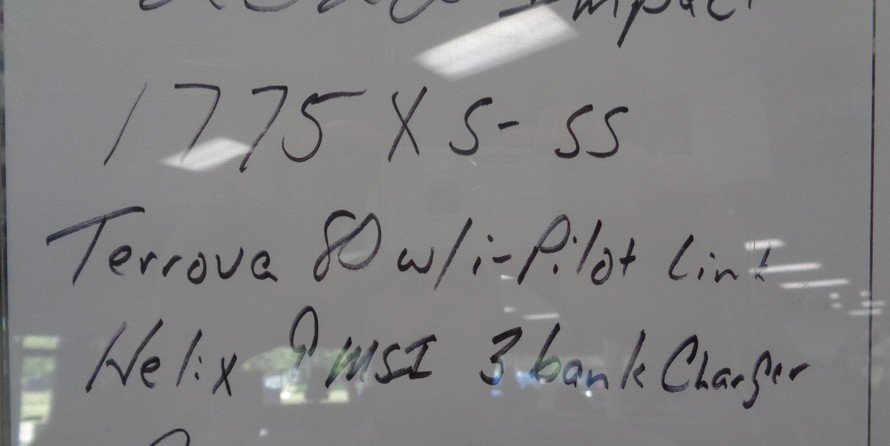 Impact
1775 XS-SS
Terrova 80 w/i-Pilot Link
Helix 9 MSI 3 bank Charger